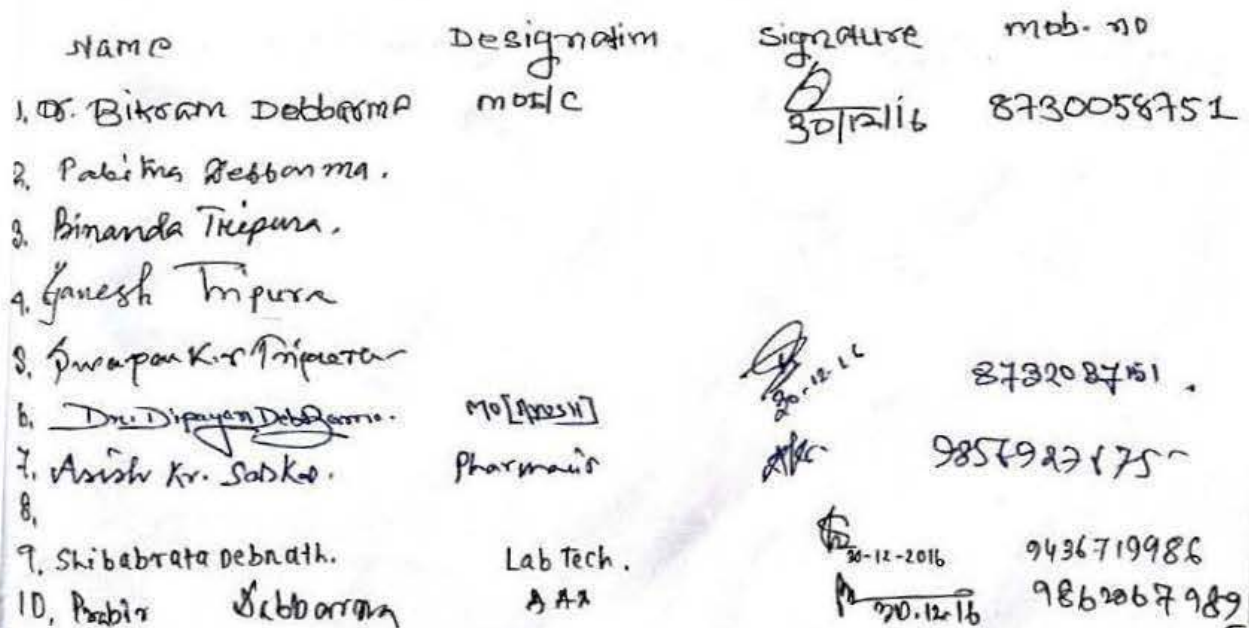 Name Designation Signature mob. no
1. Dr. Bikram Debbarma MOI/C 30/12/16 8730058751
2. Pabitra Debbarma.
3. Binanda Tripura.
4. Ganesh Tripura
5. Swapan Kr Tripura
6. Dr. Dipayan DebBarma. MO 30-12-16 8732087151.
7. Asish Kr. Sarkar. Pharmacist
8.
9. Shibabrata Debnath. Lab Tech. 30-12-2016 9436719986
10. Prabir Debbarma 30.12.16 9862067989